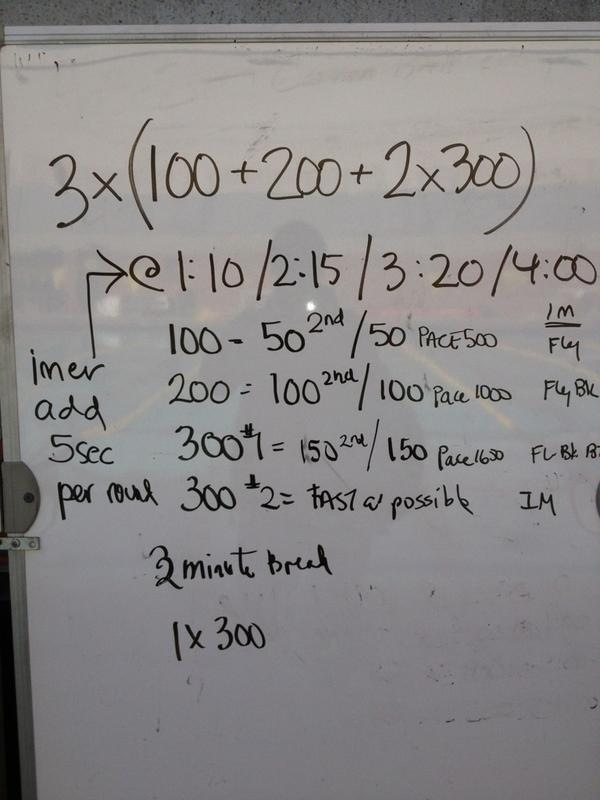 3x(100+200+2x300)
@ 1:10/2:15/3:20/4:00
IM
100 - 50 2nd/50 PACE 500 Fly
imer add 5sec per round
200 = 100 2nd/100 Pace 1000 Fly Bk
300 #1 = 150 2nd/150 Pace 1650 FL Bk
300 #2 = FAST as possible IM
minute Break
1 x 300